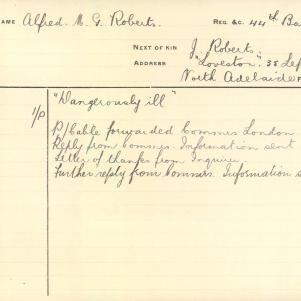 NAME Alfred. M. G. Roberts. REG. &C. 44th Ba
NEXT OF KIN J. Roberts.
ADDRESS "Loveston". 35
North Adelaide
1/P "Dangerously ill"
P/Cable forwarded Commrs London
Reply from Commrs. Information sent
Letter of thanks from Inquirer.
Further reply from Commrs. Information s